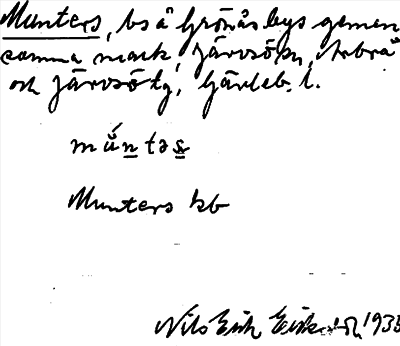 Munters, bs å Grönås bys gemen
samma mark, Järvsö sn, Arbrå
och Järvsö tg, Gävleb. l.
mu̇ntəs
Munters kb
Nils Erik 1935